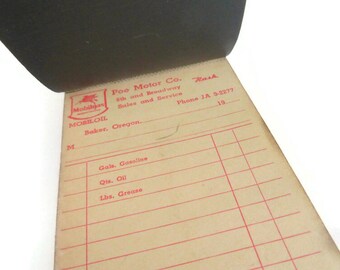 Poe Motor Co.
5th and Broadway
Sales and Service
Mobilgas
MOBILOIL
Phone JA 3-2277
Baker, Oregon, 19
M
Gals. Gasoline
Qts. Oil
Lbs. Grease